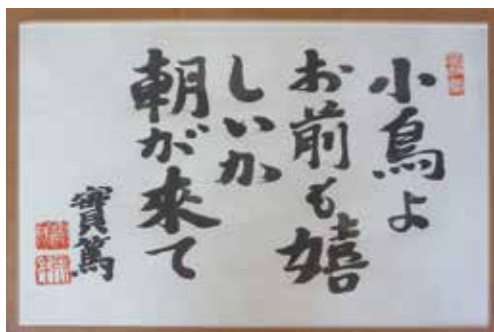 小鳥よ
お前も嬉
しいか
朝が來て
實篤